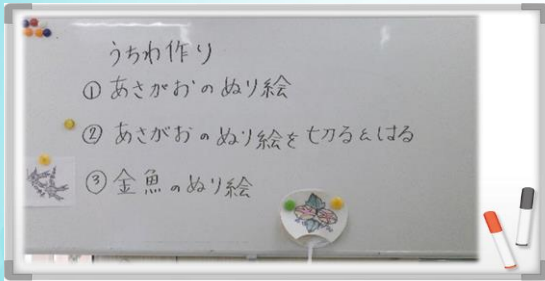 うちわ作り
① あさがおのぬり絵
② あさがおのぬり絵を切る&はる
③ 金魚のぬり絵